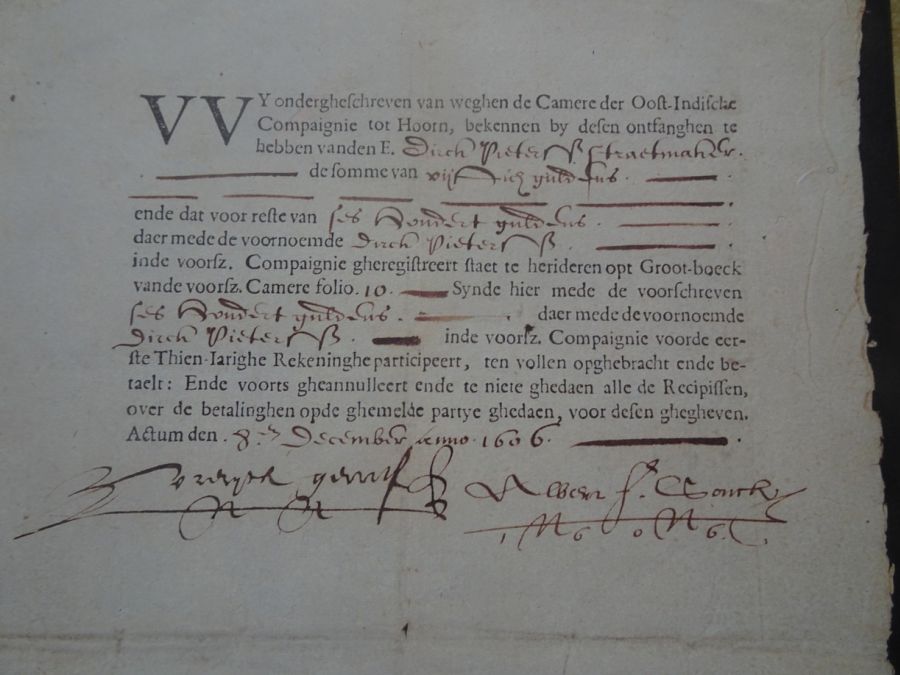 VVY ondergheſchreven van weghen de Camere der Ooſt-Indiſche
Compaignie tot Hoorn, bekennen by deſen ontfanghen te
hebben vanden E. Dirck Pieterſz Straetmaker.
de ſomme van vijftich guldens.
ende dat voor reſte van ſes hondert guldens.
daer mede de voornoemde dirck Pieterſz.
inde voorſz. Compaignie gheregiſtreert ſtaet te herideren opt Groot-boeck
vande voorſz. Camere folio. 10. Synde hier mede de voorſchreven
ſes hondert guldens. daer mede de voornoemde
Dirck Pieterſz. inde voorſz. Compaignie voorde eer-
ſte Thien-Iarighe Rekeninghe participeert, ten vollen opghebracht ende be-
taelt: Ende voorts gheannulleert ende te niete ghedaen alle de Recipiſſen,
over de betalinghen opde ghemelde partye ghedaen, voor deſen ghegheven.
Actum den. 8. December anno. 1606.